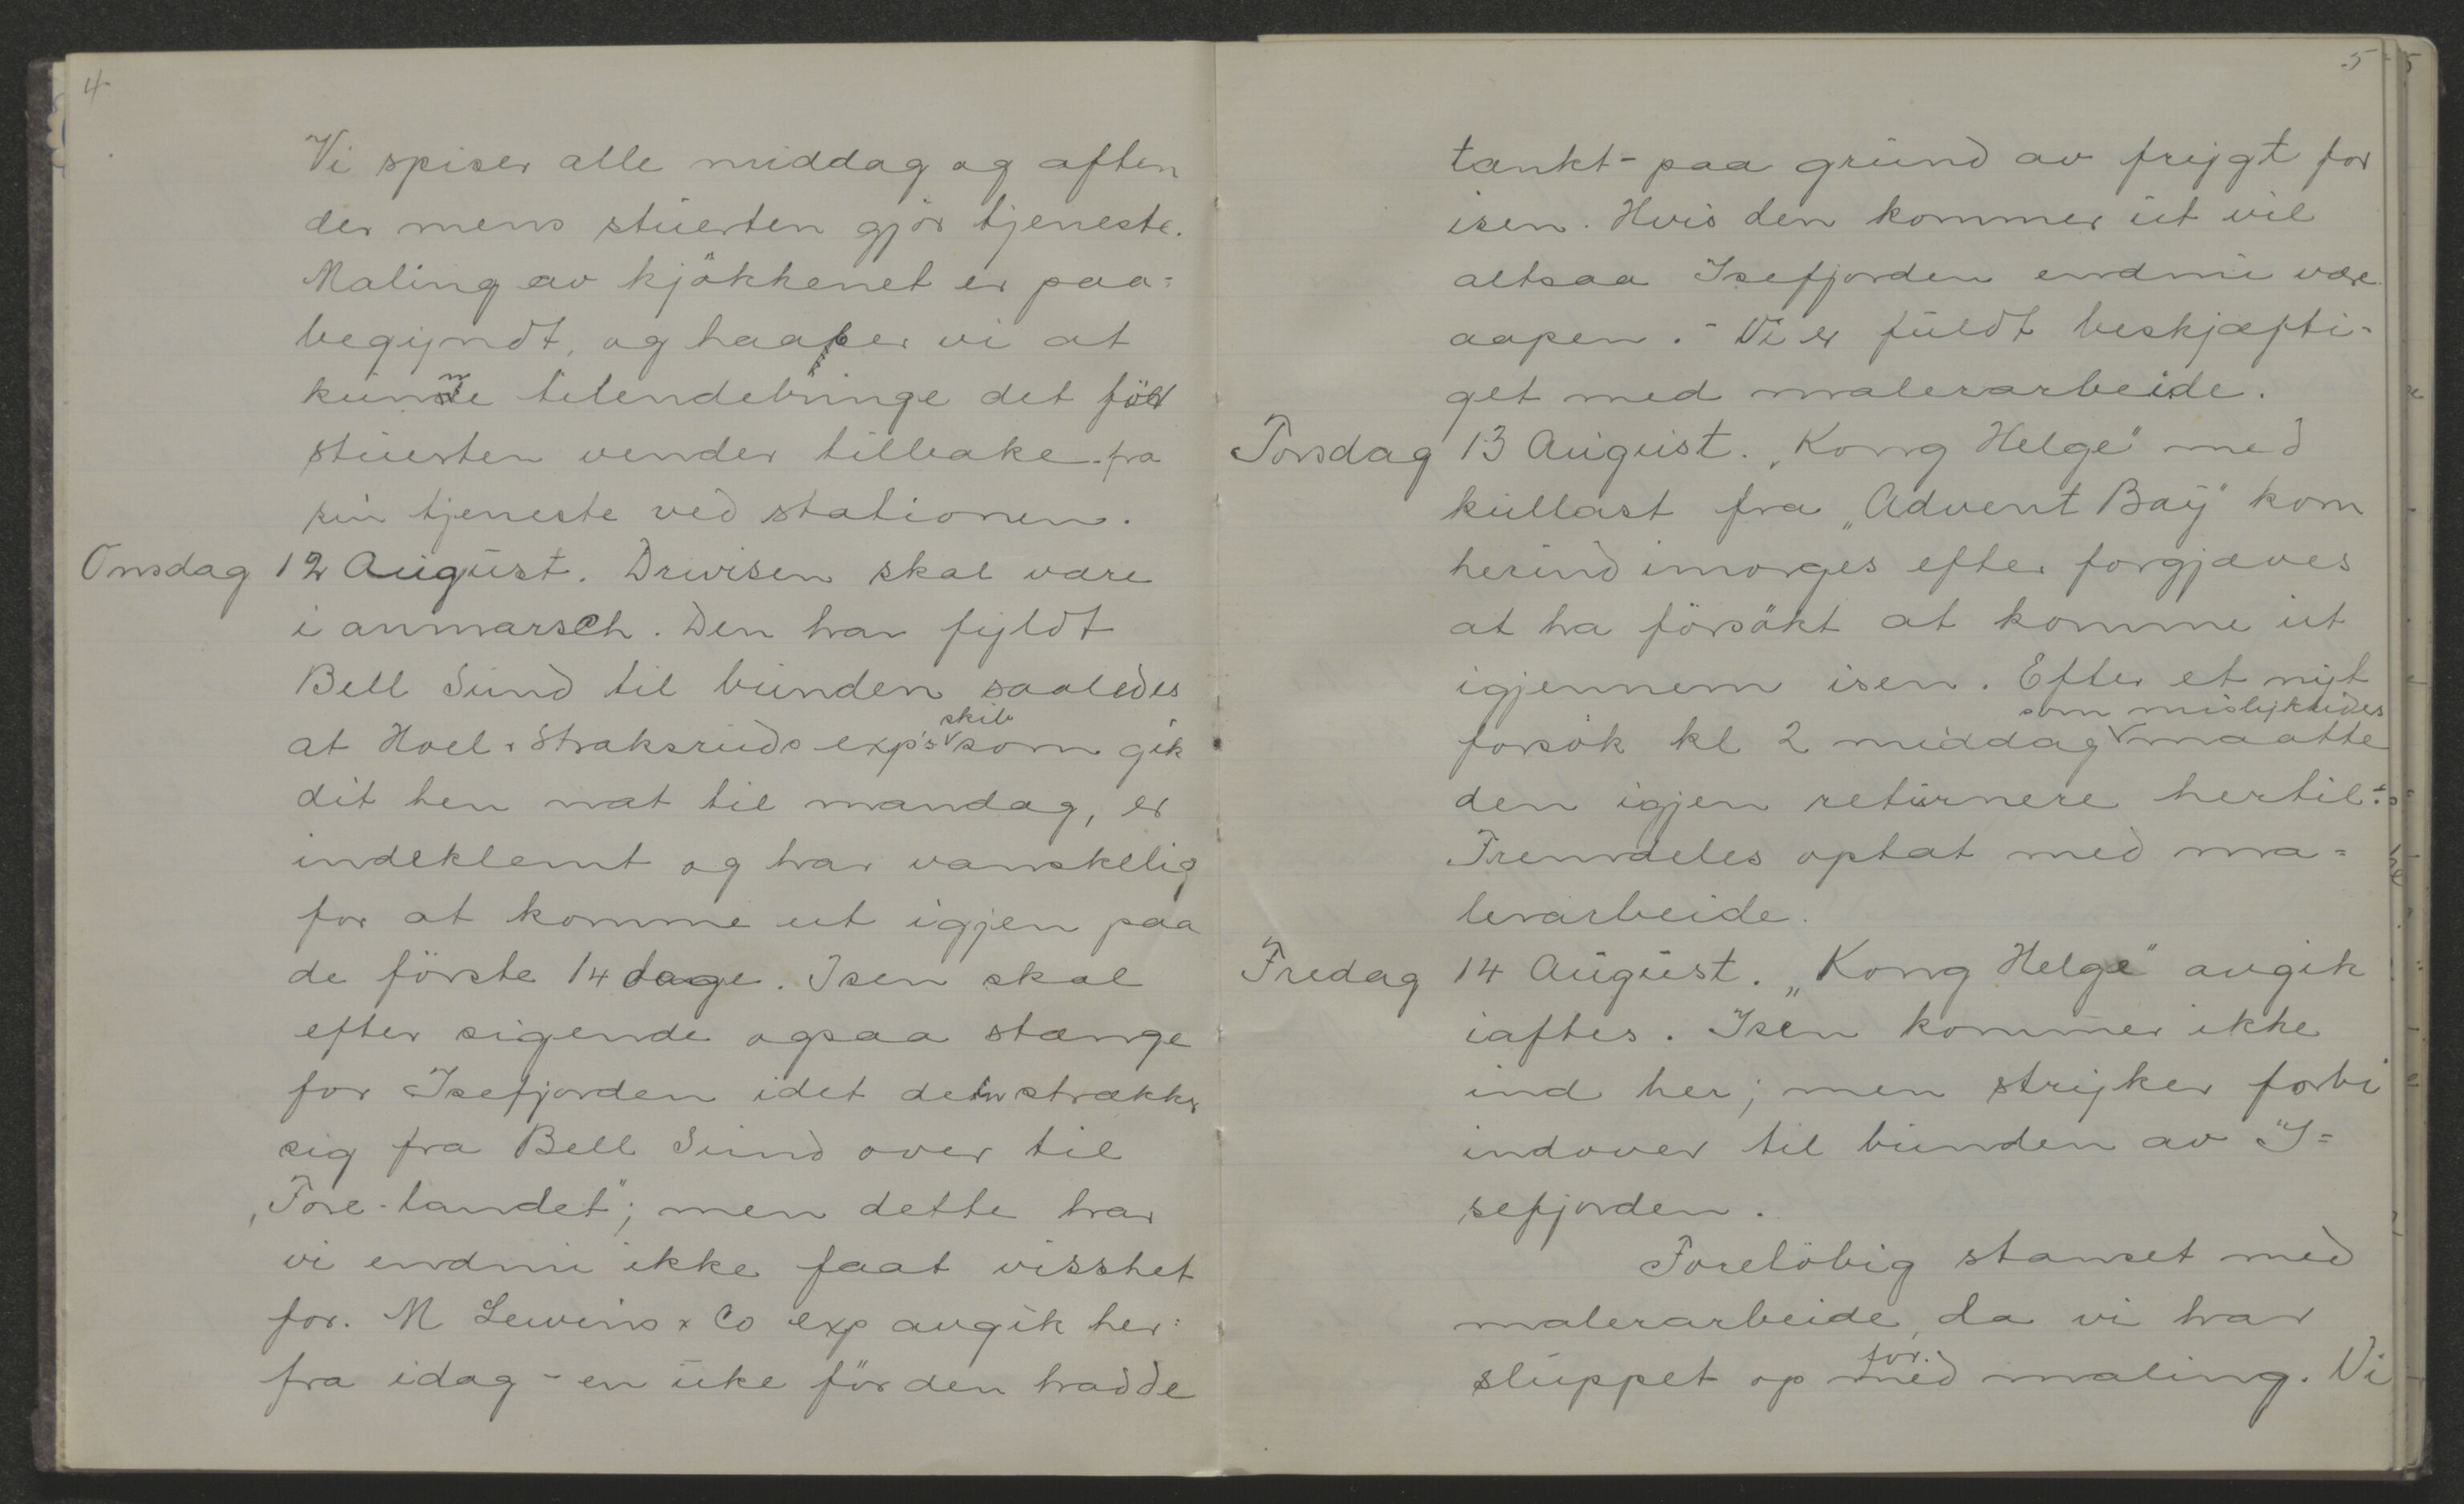 4
Vi spiser alle middag og aften
der mens stuerten gjör tjeneste.
Maling av kjökkenet er paa=
begyndt, og haaper vi at
kunne tilendebringe det för
stuerten vender tilbake fra
sin tjeneste ved stationen.
Onsdag 12 August. Drivisen skal være
i anmarsch. Den har fyldt
Bell Sund til bunden saaledes
at Hoel & Staksruds exp's skib som gik
dit hen nat til mandag, er
indeklemt og har vanskelig
for at komme ut igjen paa
de förste 14 dage. Isen skal
efter sigende ogsaa stænge
for Isefjorden idet den strækker
sig fra Bell Sund over til
"Fore-landet"; men dette har
vi endnu ikke faat visshet
for. M Lewins & Co exp avgik her=
fra idag - en uke för den hadde
5
tænkt - paa grund av frygt for
isen. Hvis den kommer ut vil
altsaa Isefjorden endnu være
aapen. - Vi er fuldt beskjæfti-
get med malerarbeide.
Torsdag 13 August. „Kong Helge" med
kullast fra „Advent Bay" kom
herind imorges efter forgjæves
at ha försökt at komme ut
igjennem isen. Efter et nyt
forsök kl 2 middag som mislykkedes maatte
den igjen returnere hertil. -
Fremdeles optat med ma=
lerarbeide.
Fredag 14 August. „Kong Helge" avgik
iaftes. Isen kommer ikke
ind her; men stryker forbi
indover til bunden av I=
sefjorden.
Forelöbig stanset med
malerarbeide, da vi har
sluppet op med for maling. Vi